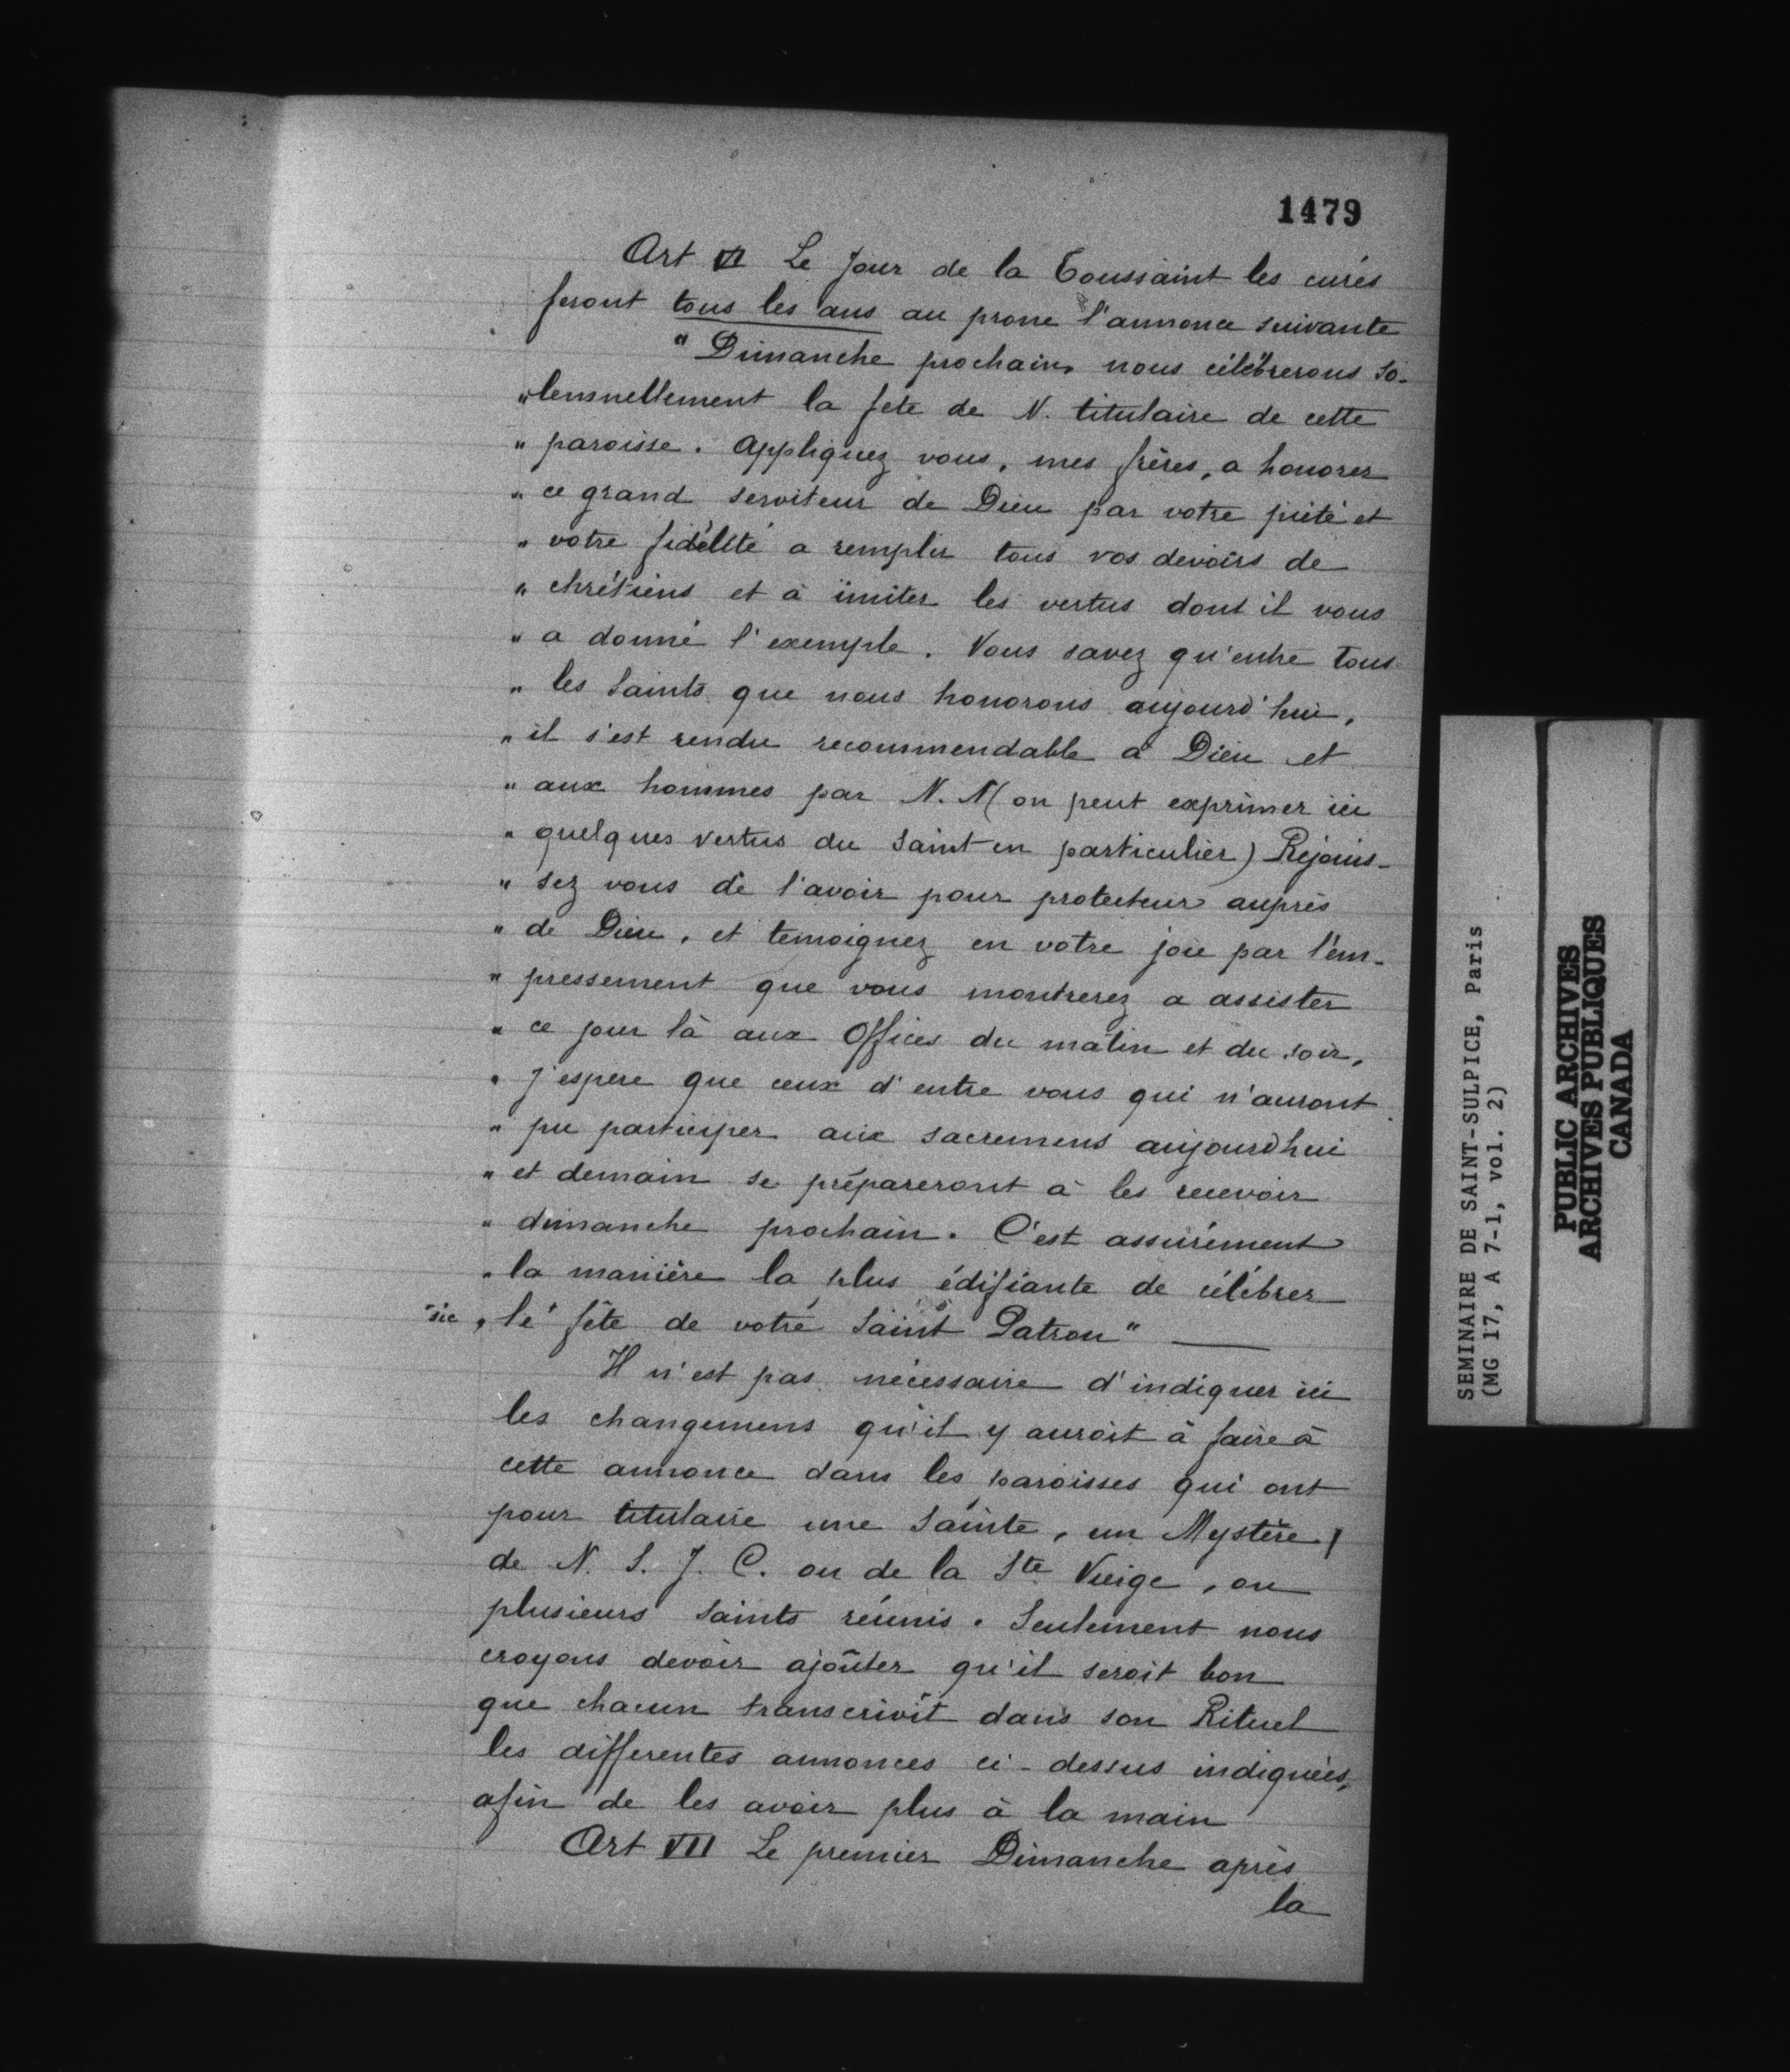 1479
Art VI Le Jour de la Toussaint les curés
feront tous les ans au prone l'annonce suivante
" Dimanche prochain, nous célébrerons so-
" lensnellement la fete de N. titulaire de cette
" paroisse. Appliquez vous, mes frères, a honorer
" ce grand serviteur de Dieu par votre piété et
" votre fidélité a remplir tous vos devoirs de
" chrétiens et à imiter les vertus dont il vous
" a donné l'exemple. Vous savez qu'entre tous
" les Saints que nous honorons aujourd'hui,
" il s'est rendu recommendable a Dieu et
" aux hommes par N. N (on peut exprimer ici
" quelques vertus du Saint en particulier) Réjouis-
" sez vous de l'avoir pour protecteur auprès
" de Dieu, et temoignez en votre joie par l'em-
" pressement que vous montrerez a assister
" ce jour là aux Offices du matin et du soir,
" J'espere que ceux d'entre vous qui n'auront
" pu participer aux sacremens aujourdhui
" et demain se prépareront à les recevoir
" dimanche prochain. C'est assurément
" la manière la plus édifiante de célébrer
sic " le fête de votre Saint Patron"
Il n'est pas nécessaire d'indiquer ici
les changemens qu'il y auroit à faire à
cette annonce dans les paroisses qui ont
pour titulaire une Sainte, un Mystère
de N. S. J. C. ou de la Ste Vierge, ou
plusieurs Saints réunis. Seulement nous
croyons devoir ajoûter qu'il seroit bon
que chacun transcrivît dans son Rituel
les differentes annonces ci-dessus indiquées,
afin de les avoir plus à la main
Art VII Le premier Dimanche après
la
SEMINAIRE DE SAINT-SULPICE, Paris
(MG 17, A 7-1, vol. 2)
PUBLIC ARCHIVES
ARCHIVES PUBLIQUES
CANADA